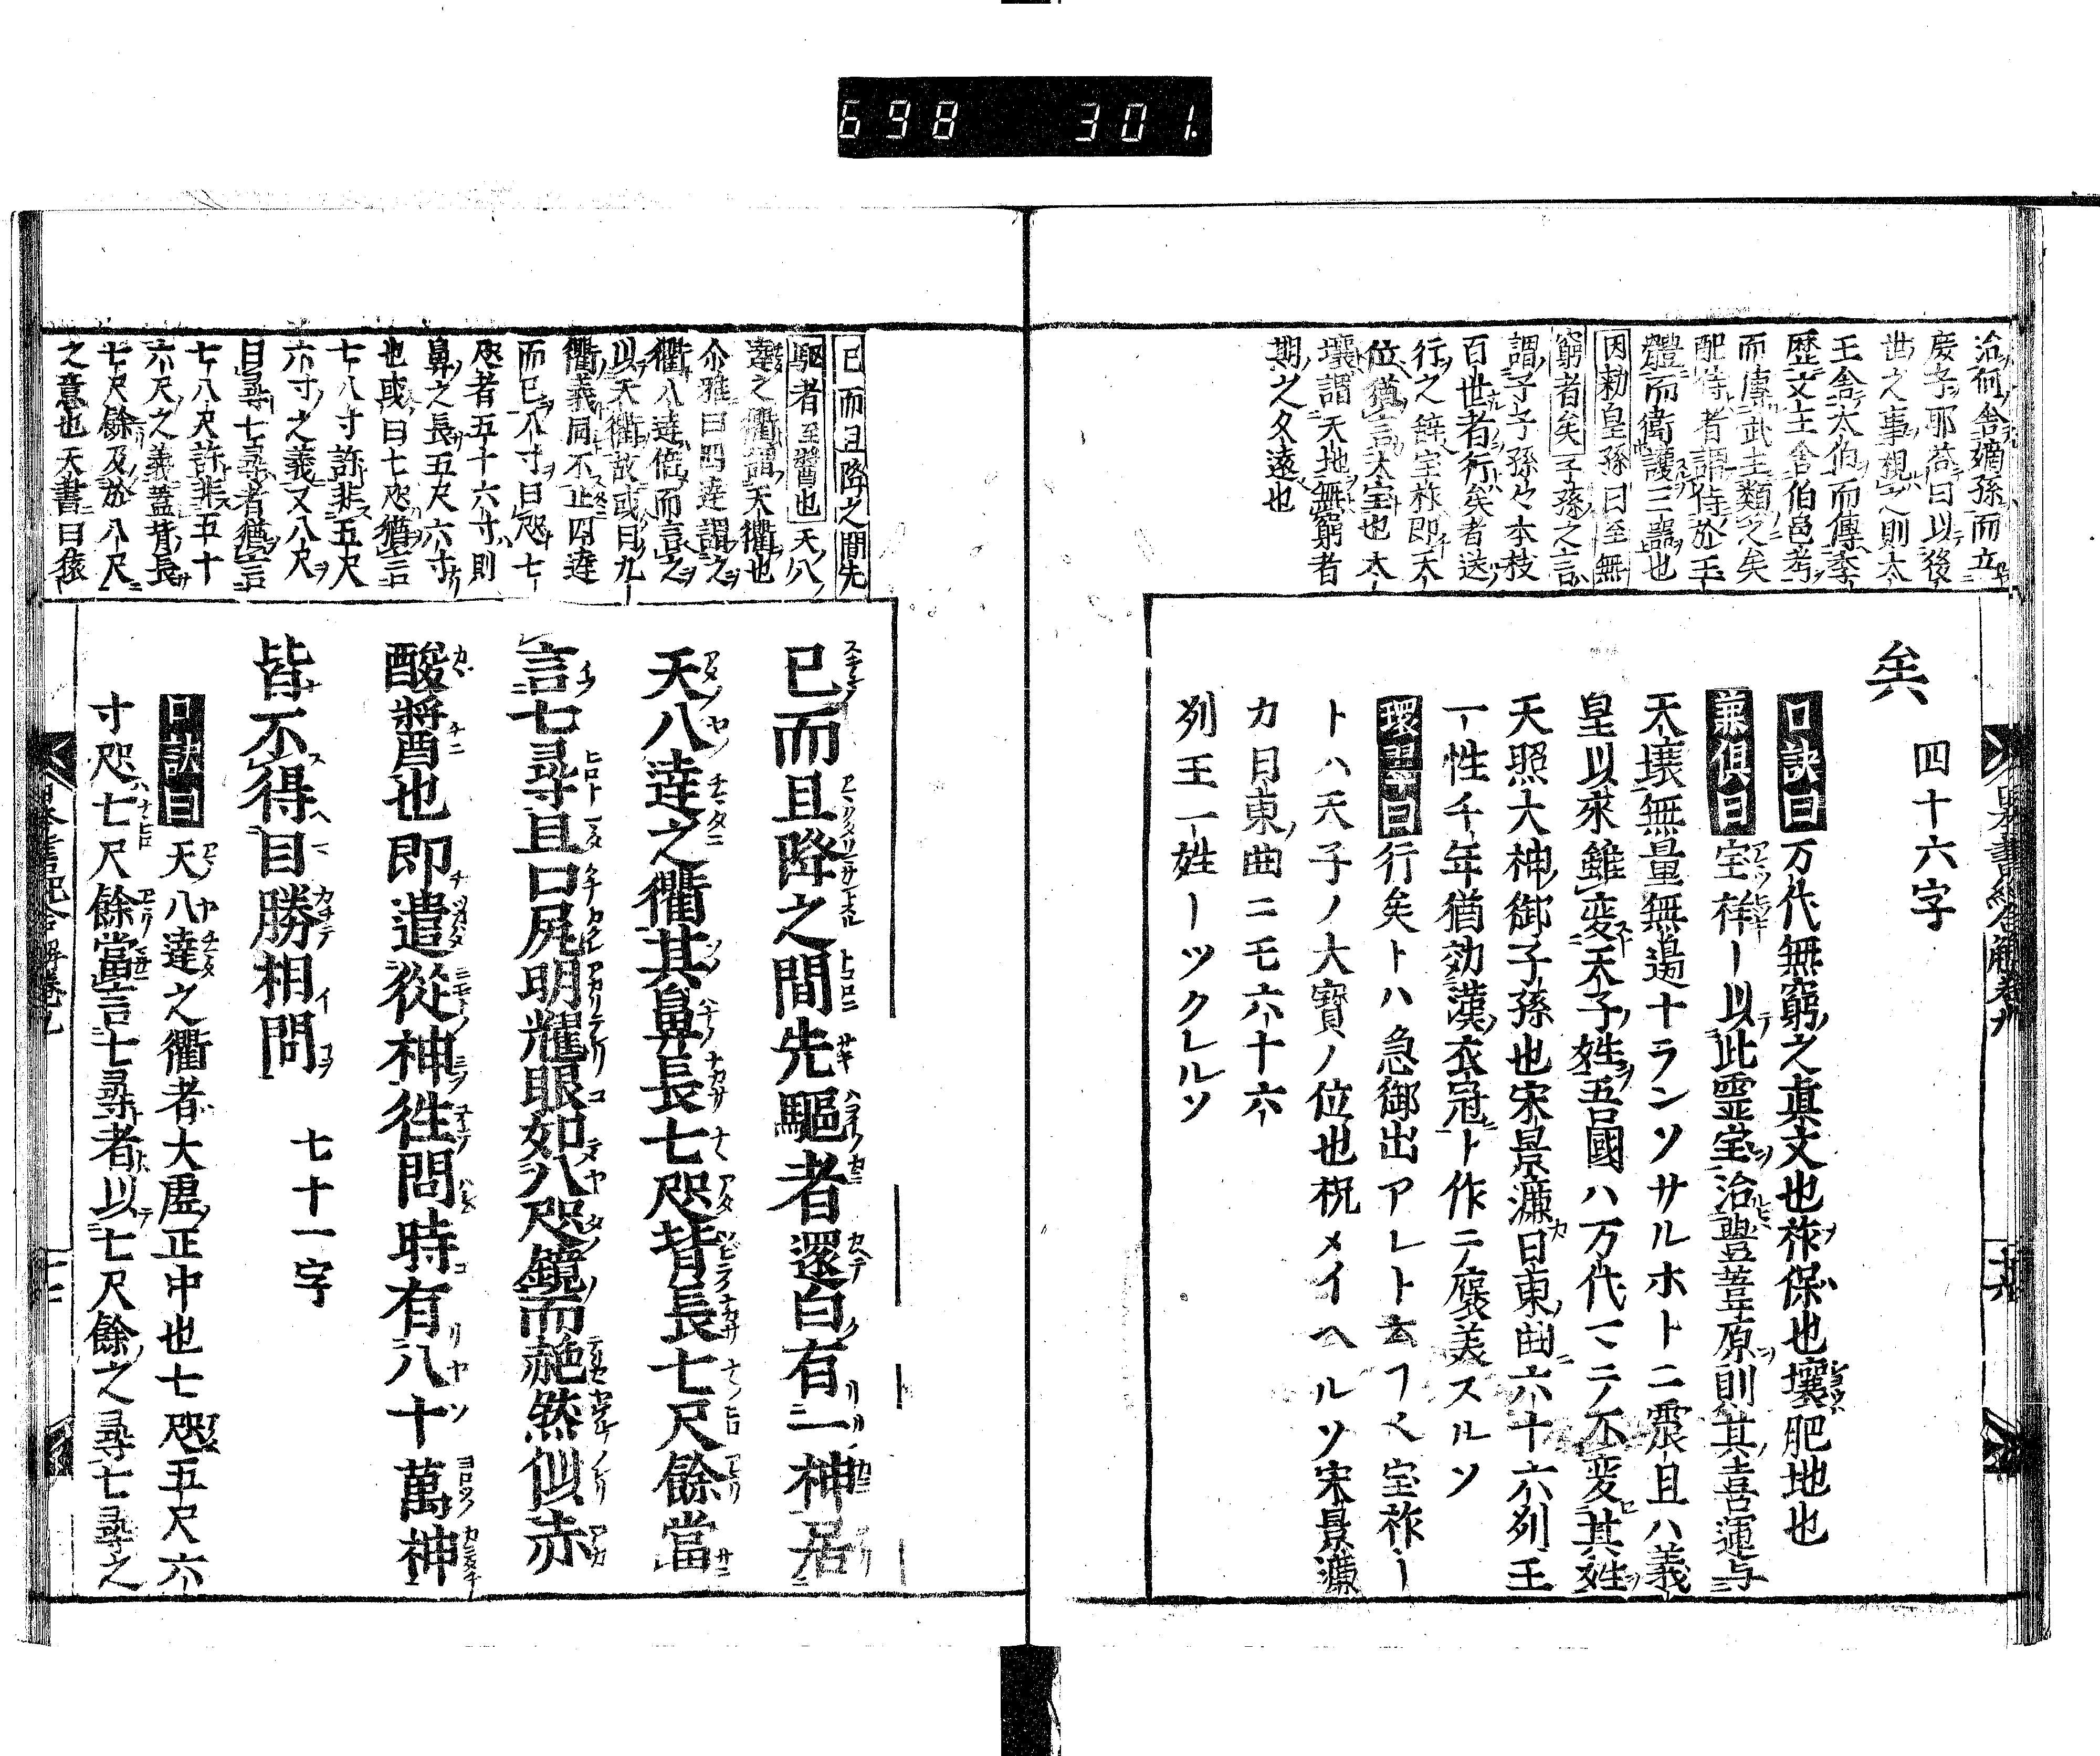 698 301.
治何舎嫡孫而立
慶子耶荅曰以後
世之事視之則太
王舎太伯而傳季
歴文王舎伯邑考
而傳武王類之矣
配侍者謂侍於王
體而衛護三器也
因勅皇孫曰至無
窮者矣子孫之言
謂子子孫々本枝
百世者行矣者送
行之辞宝祚即天
位猶言太宝也太
壤謂天地無窮者
期之久遠也
矣 四十六字
口訣曰万代無窮之真文也祚保也壤肥地也
兼倶曰宝祚ー以此霊宝治豊葦原則其喜運与
天壤無量無邉ナランソサルホトニ震旦ハ義
皇以來雖変天子姓吾國ハ万代一ニノ不変其姓
天照大神御子孫也宋景濂日東曲六十六列王
一性千年猶効漢衣冠ト作ニノ褒美スルソ
環翠曰行矣トハ急御出アレト云フ心宝祚ー
トハ天子ノ大寶ノ位也祝メイヘルソ宋景濂
カ日東曲ニモ六十六
列王一姓ーツクレルソ
已而且降之間先
駆者至醤也天八
達之衢謂天衢也
尒雅曰四達謂之
衢八達倍而言之
以天衢故或曰九
衢義同不止四達
而已八寸曰咫七
咫者五十六寸則
鼻之長五尺六寸
也或曰七咫猶言
七八寸許非五尺
六寸之義又八尺
曰尋七尋者猶言
七八尺許非五十
六尺之義蓋背長
七尺餘及於八尺
之意也天書曰猿
已而且降之間先驅者還白有一神居
天八達之衢其鼻長七咫背長七尺餘當
言七尋且口尻明耀眼如八咫鏡而赩然似赤
酸醤也即遣從神徃問時有八十萬神
皆不得目勝相問 七十一字
口訣曰天八達之衢者大虚正中也七咫五尺六
寸咫七尺餘當言七尋者以七尺餘之尋七尋之